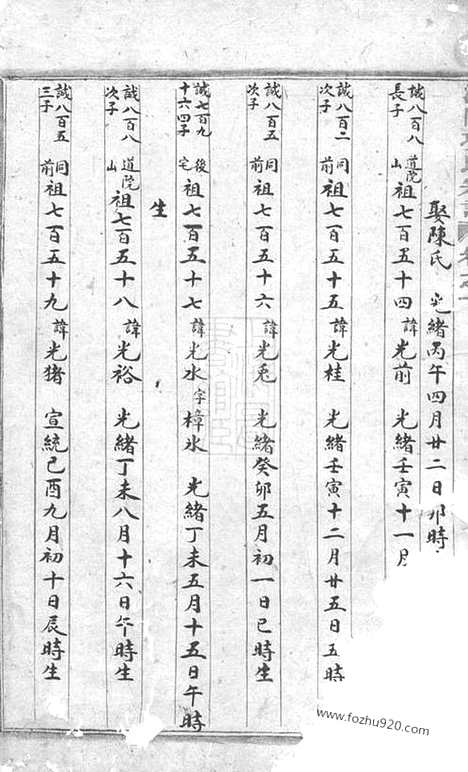 娶陳氏 光緒丙午四月廿二日卯時
誠八百八長子 道院山 祖七百五十四 諱光前 光緒壬寅十一月
誠八百二次子 同前 祖七百五十五 諱光桂 光緒壬寅十二月廿五日五時
誠八百五次子 同前 祖七百五十六 諱光兎 光緒癸卯五月初一日巳時生
誠七百九十六四子 後宅 祖七百五十七 諱光水 字樟水 光緒丁未五月十五日午時
生
誠八百八次子 道院山 祖七百五十八 諱光裕 光緒丁未八月十六日午時生
誠八百五三子 同前 祖七百五十九 諱光猪 宣統己酉九月初十日辰時生
www.fozhu920.com